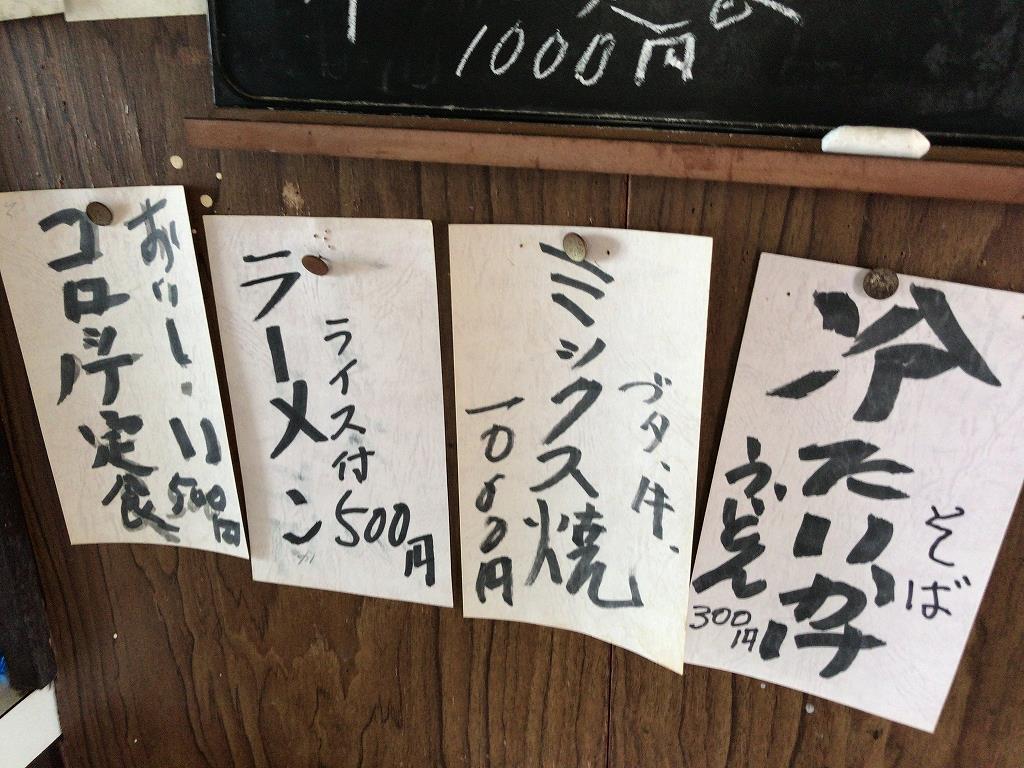 1000円
おいしい 500円
コロッケ定食
ライス付 500円
ラーメン
ブタ、牛、
ミックス焼
一〇〇〇円
そば
冷たい
うどん
300円